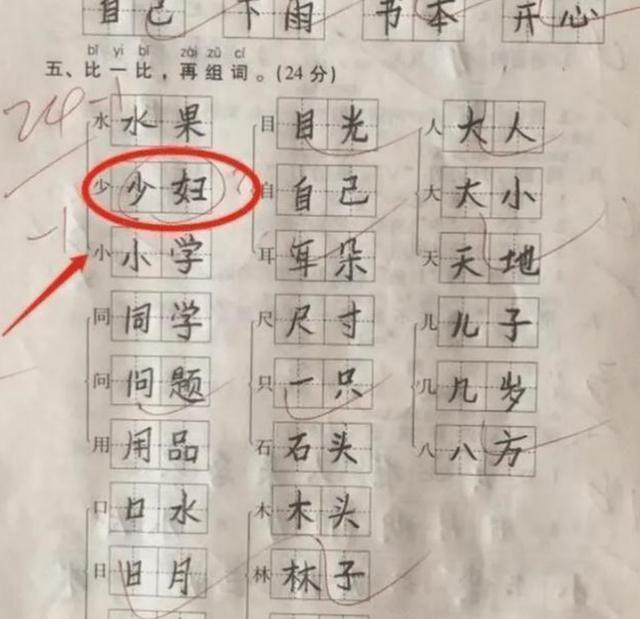 自己 下雨 书本 开心
bǐ yi bǐ zài zǔ cí
五、比一比，再组词。(24分)
24 -1
水 水果 目 目光 人 大人
少 少妇 自 自己 大 大小
-1
小 小学 耳 耳朵 天 天地
同 同学 尺 尺寸 儿 儿子
问 问题 只 一只 几 几岁
用 用品 石 石头 八 八方
口 口水 木 木头
日 日月 林 林子